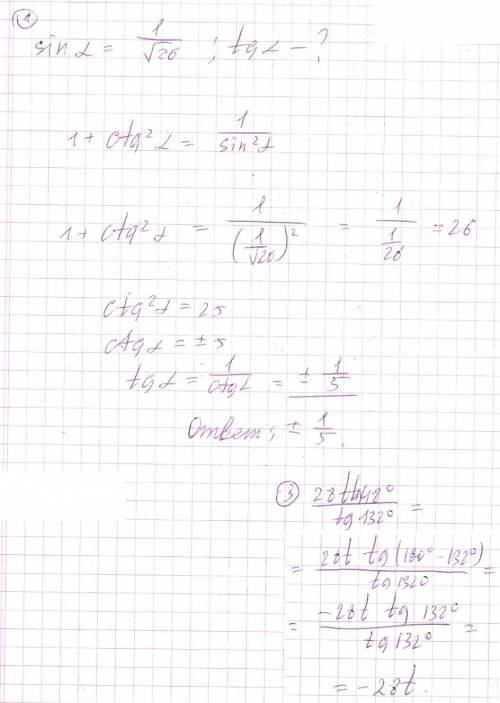 ① sin α = 1/√26 ; tg α - ?
1 + ctg² α = 1/sin² α
1 + ctg² α = 1/(1/√26)² = 1/(1/26) = 26
ctg² α = 25
ctg α = ± 5
tg α = 1/ctg α = ± 1/5
Ответ: ± 1/5.
③ 28t tg 48°/tg 132° =
= 28t tg (180° - 132°)/tg 132° =
= -28t tg 132°/tg 132° =
= -28t.